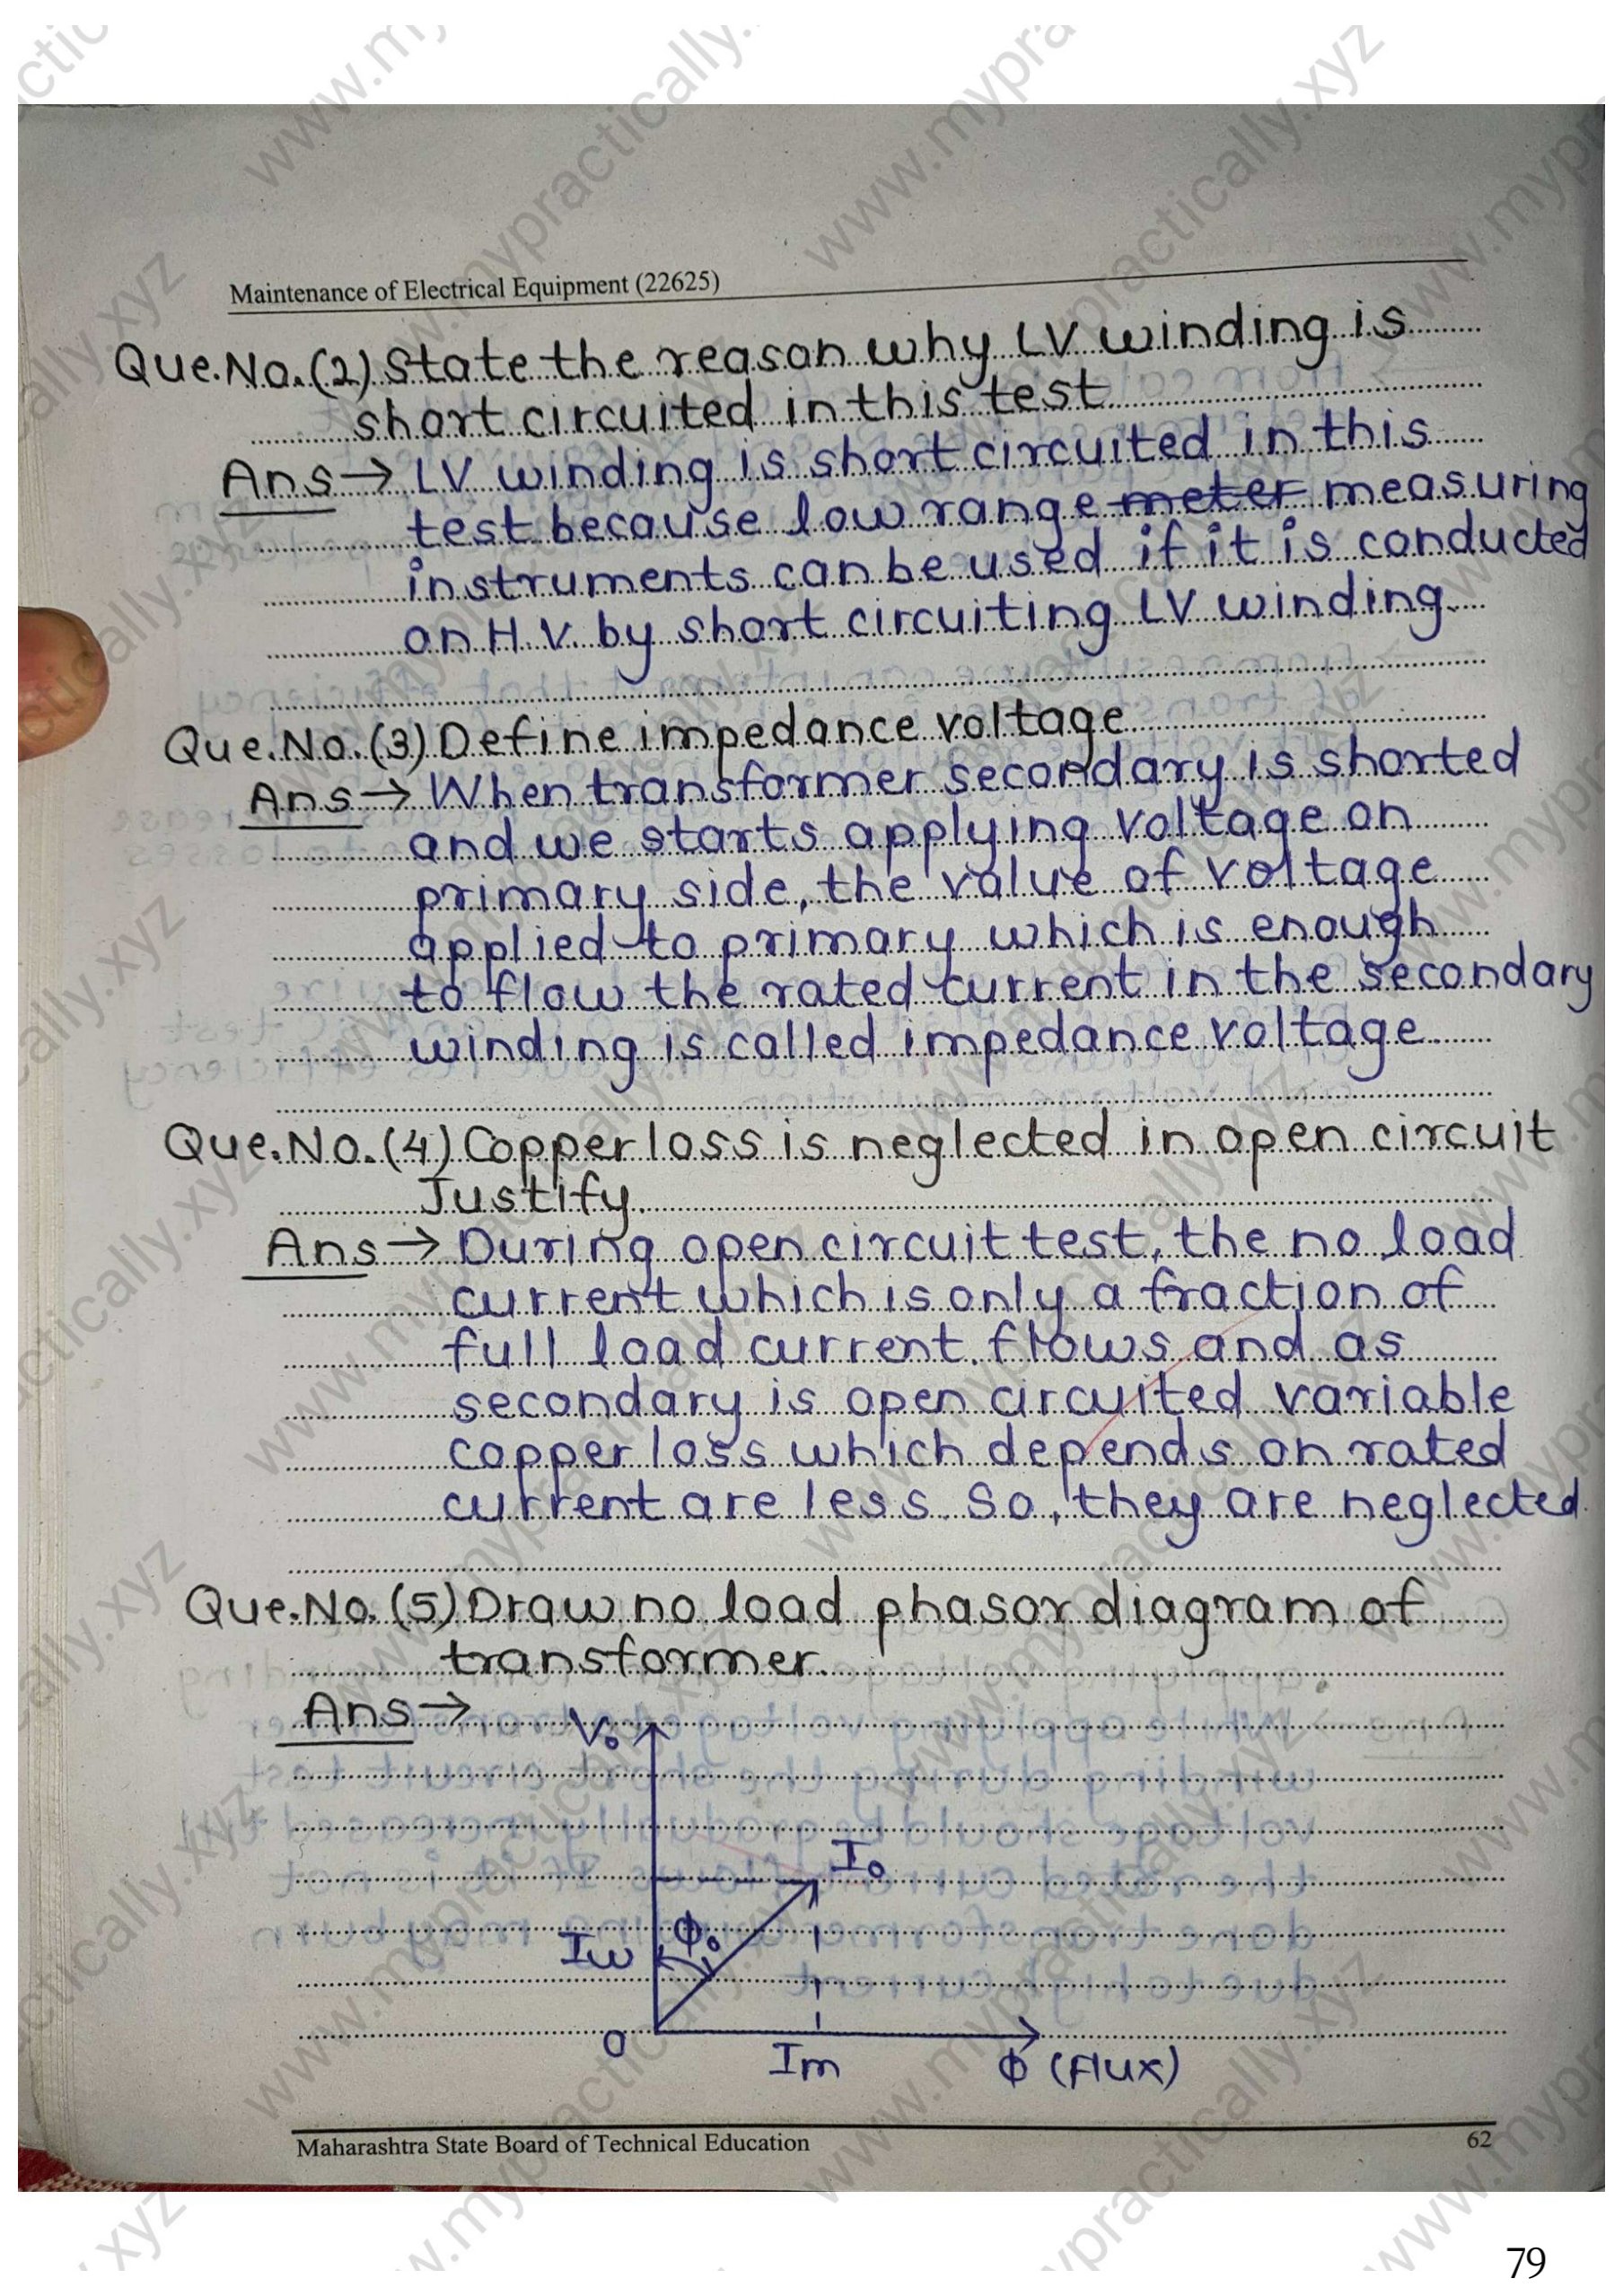 Maintenance of Electrical Equipment (22625)
Que.No.(2) State the reason why LV winding is
short circuited in this test
Ans → LV winding is short circuited in this
test because low range meter measuring
instruments can be used if it is conducted
on H.V. by short circuiting LV winding.
Que.No.(3) Define impedance voltage
Ans → When transformer secondary is shorted
and we starts applying voltage on
primary side, the value of voltage
applied to primary which is enough
to flow the rated current in the secondary
winding is called impedance voltage.
Que.No.(4) Copper loss is neglected in open circuit
Justify.
Ans → During open circuit test, the no load
current which is only a fraction of
full load current. flows and as
secondary is open circuited variable
copper loss which depends on rated
current are less. So, they are neglected.
Que.No.(5) Draw no load phasor diagram of
transformer.
Ans →
V₀
I₀
ϕ₀
Iw
O
Im
ϕ (Flux)
Maharashtra State Board of Technical Education 62
79
www.mypractically.xyz